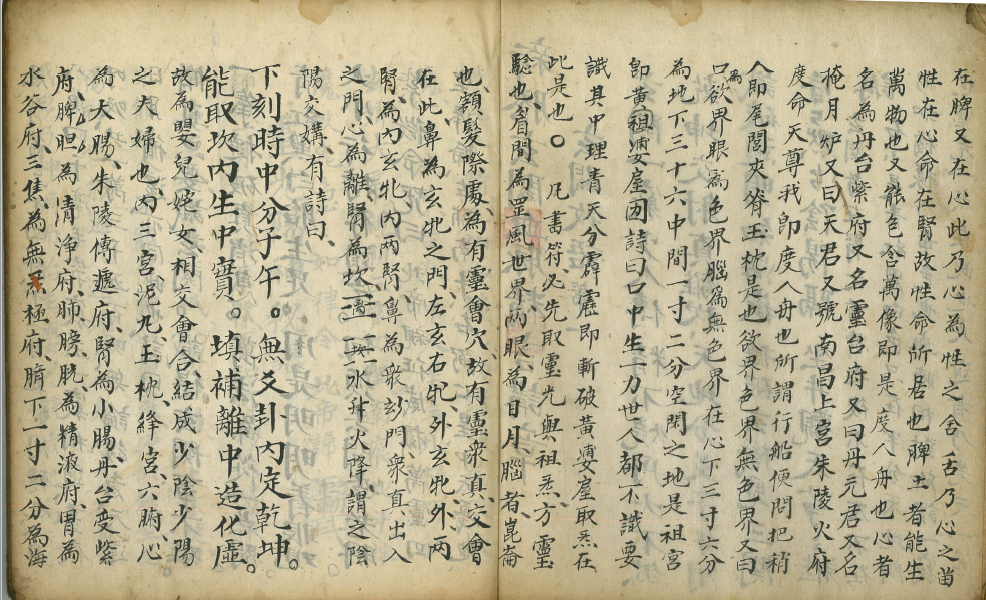 在脾又在心此乃心為性之舍舌乃心之苗
性在心命在腎故性命所居也脾土者能生
萬物也又能色含萬像即是度人舟也心者
名為丹台紫府又名靈台府又曰丹元君又名
掩月炉又曰天君又號南昌上宮朱陵火府
度命天尊我卽度人舟也所謂行船便問把稍
人即尾閭夾脊玉枕是也欲界色界無色界又曰
口為欲界眼為色界腦為無色界在心下三寸六分
為地下三十六中間一寸二分空閑之地是祖宮
卽黃祖婆屋囯詩曰口中生一力世人都不識要
識其中理青天分霹靂即斬破黃婆屋取炁在
此是也〇凡書符必先取靈光與祖炁方靈
驗也眉間為罡風世界两眼為日月腦者崑崙
也額髮際處為有靈會穴故有靈衆真交會
在此鼻為玄牝之門左玄右牝外玄牝外两
腎為內玄牝內两腎鼻為衆玅門衆真出入
之門心為離腎為坎三三水升火降謂之陰
陽交媾有詩曰
下刻時中分子午。無爻卦內定乾坤。
能取坎內生中實。填補離中造化虛。
故為嬰兒姹女相交會合結成少陰少陽
之夫婦也內三宮泥丸玉枕絳宮六腑心
為大腸朱陵傳遞府腎為小腸丹台受紫
府脾胆為清淨府肺膀胱為精液府胃為
水谷府三焦為無極府臍下一寸二分為海